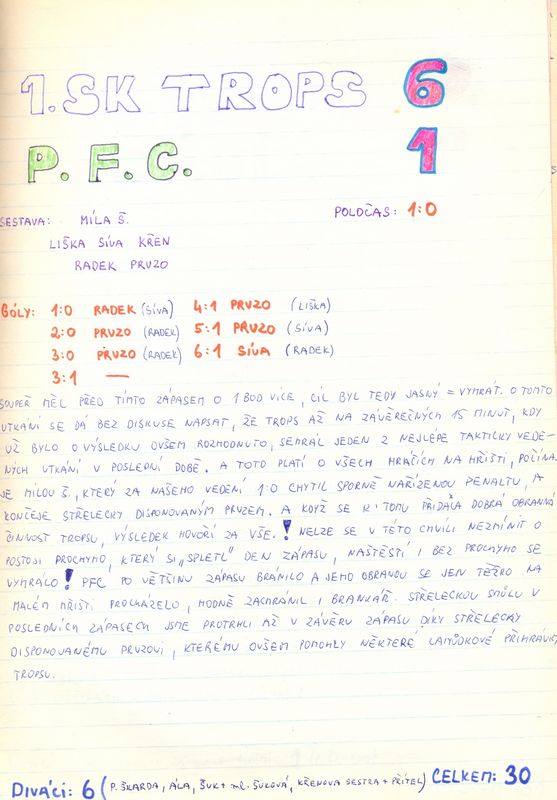 1. SK TROPS 6
P. F. C. 1
SESTAVA: MÍLA Š. POLOČAS: 1:0
LIŠKA SÍVA KŘEN
RADEK PRUZO
GÓLY: 1:0 RADEK (SÍVA) 4:1 PRUZO (LIŠKA)
2:0 PRUZO (RADEK) 5:1 PRUZO (SÍVA)
3:0 PRUZO (RADEK) 6:1 SÍVA (RADEK)
3:1 —
SOUPEŘ MĚL PŘED TÍMTO ZÁPASEM O 1 BOD VÍCE, CÍL BYL TEDY JASNÝ = VYHRÁT. O TOMTO
UTKÁNÍ SE DÁ BEZ DISKUSE NAPSAT, ŽE TROPS AŽ NA ZÁVĚREČNÝCH 15 MINUT, KDY
UŽ BYLO O VÝSLEDKU OVŠEM ROZHODNUTO, SEHRÁL JEDEN Z NEJLÉPE TAKTICKY VEDE-
NÝCH UTKÁNÍ V POSLEDNÍ DOBĚ. A TOTO PLATÍ O VŠECH HRÁČÍCH NA HŘIŠTI, POČÍNA-
JE MÍLOU Š., KTERÝ ZA NAŠEHO VEDENÍ 1:0 CHYTIL SPORNĚ NAŘÍZENOU PENALTU, A
KONČEJE STŘELECKY DISPONOVANÝM PRUZEM. A KDYŽ SE K TOMU PŘIDALA DOBRÁ OBRANNÁ
ČINNOST TROPSU, VÝSLEDEK HOVOŘÍ ZA VŠE. ! NELZE SE V TÉTO CHVÍLI NEZMÍNIT O
POSTOJI PROCHYHO, KTERÝ SI „SPLETL" DEN ZÁPASU, NAŠTĚSTÍ I BEZ PROCHYHO SE
VYHRÁLO ! PFC PO VĚTŠINU ZÁPASU BRÁNILO A JEHO OBRANOU SE JEN TĚŽKO NA
MALÉM HŘIŠTI PROCHÁZELO, HODNĚ ZACHRÁNIL I BRANKÁŘ. STŘELECKOU SMŮLU V
POSLEDNÍCH ZÁPASECH JSME PROTRHLI AŽ V ZÁVĚRU ZÁPASU DÍKY STŘELECKY
DISPONOVANÉMU PRUZOVI, KTERÉMU OVŠEM POMOHLY NĚKTERÉ LAHŮDKOVÉ PŘIHRÁVKY
TROPSU.
DIVÁCI: 6 (P. ŠKARDA, ÁLA, ŠUK + ml. ŠUKOVÁ, KŘENOVA SESTRA + PŘÍTEL) CELKEM: 30